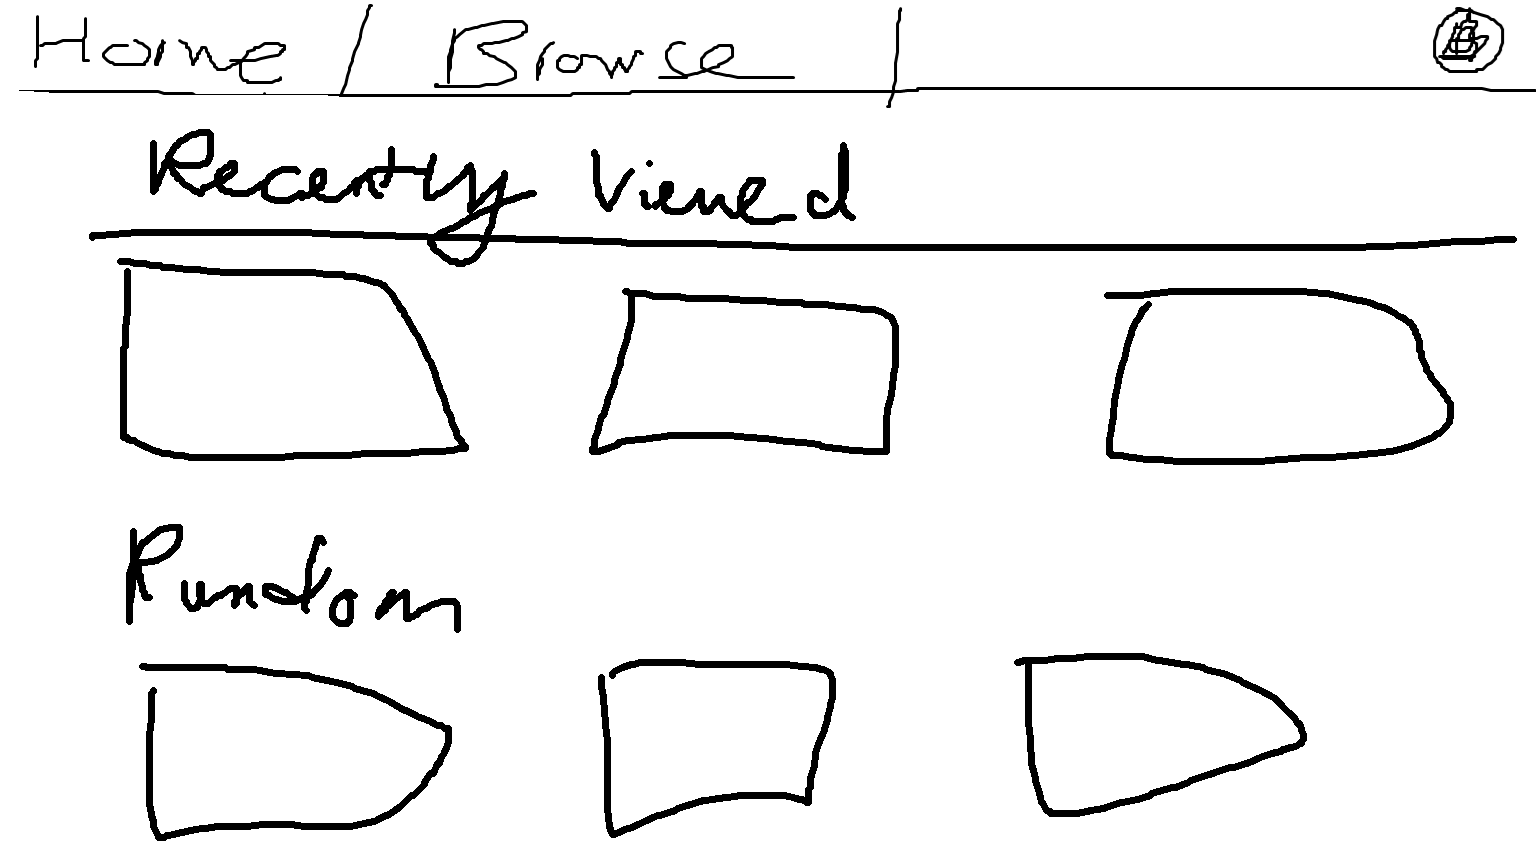 Home / Browse |
Recently Viewed
Random